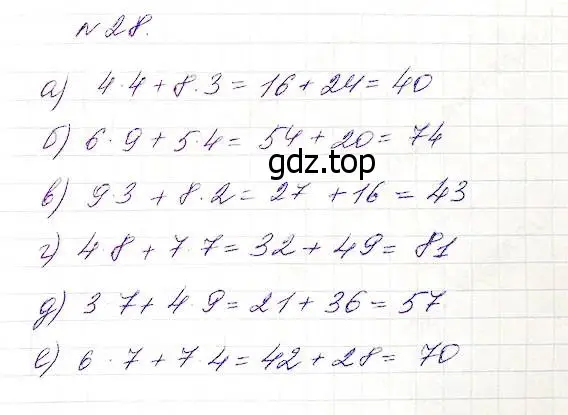 № 28.
а) 4·4+8·3=16+24=40
б) 6·9+5·4=54+20=74
gdz.top
в) 9·3+8·2=27+16=43
г) 4·8+7·7=32+49=81
д) 3·7+4·9=21+36=57
е) 6·7+7·4=42+28=70